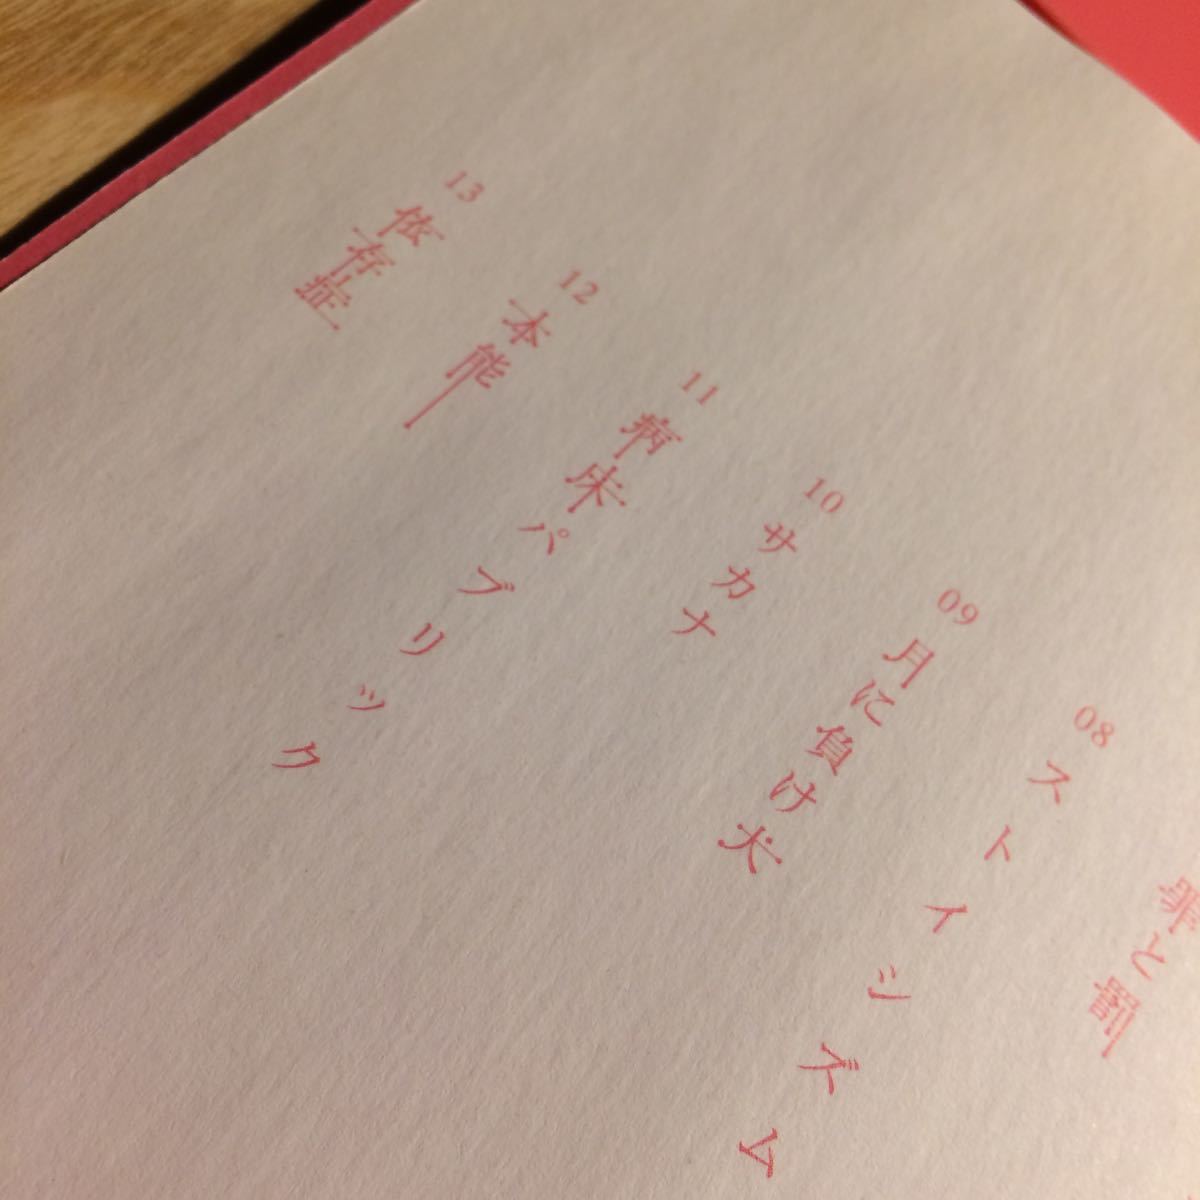 罪と罰
08 ストイシズム
09 月に負け犬
10 サカナ
11 病床パブリック
12 本能
13 依存症